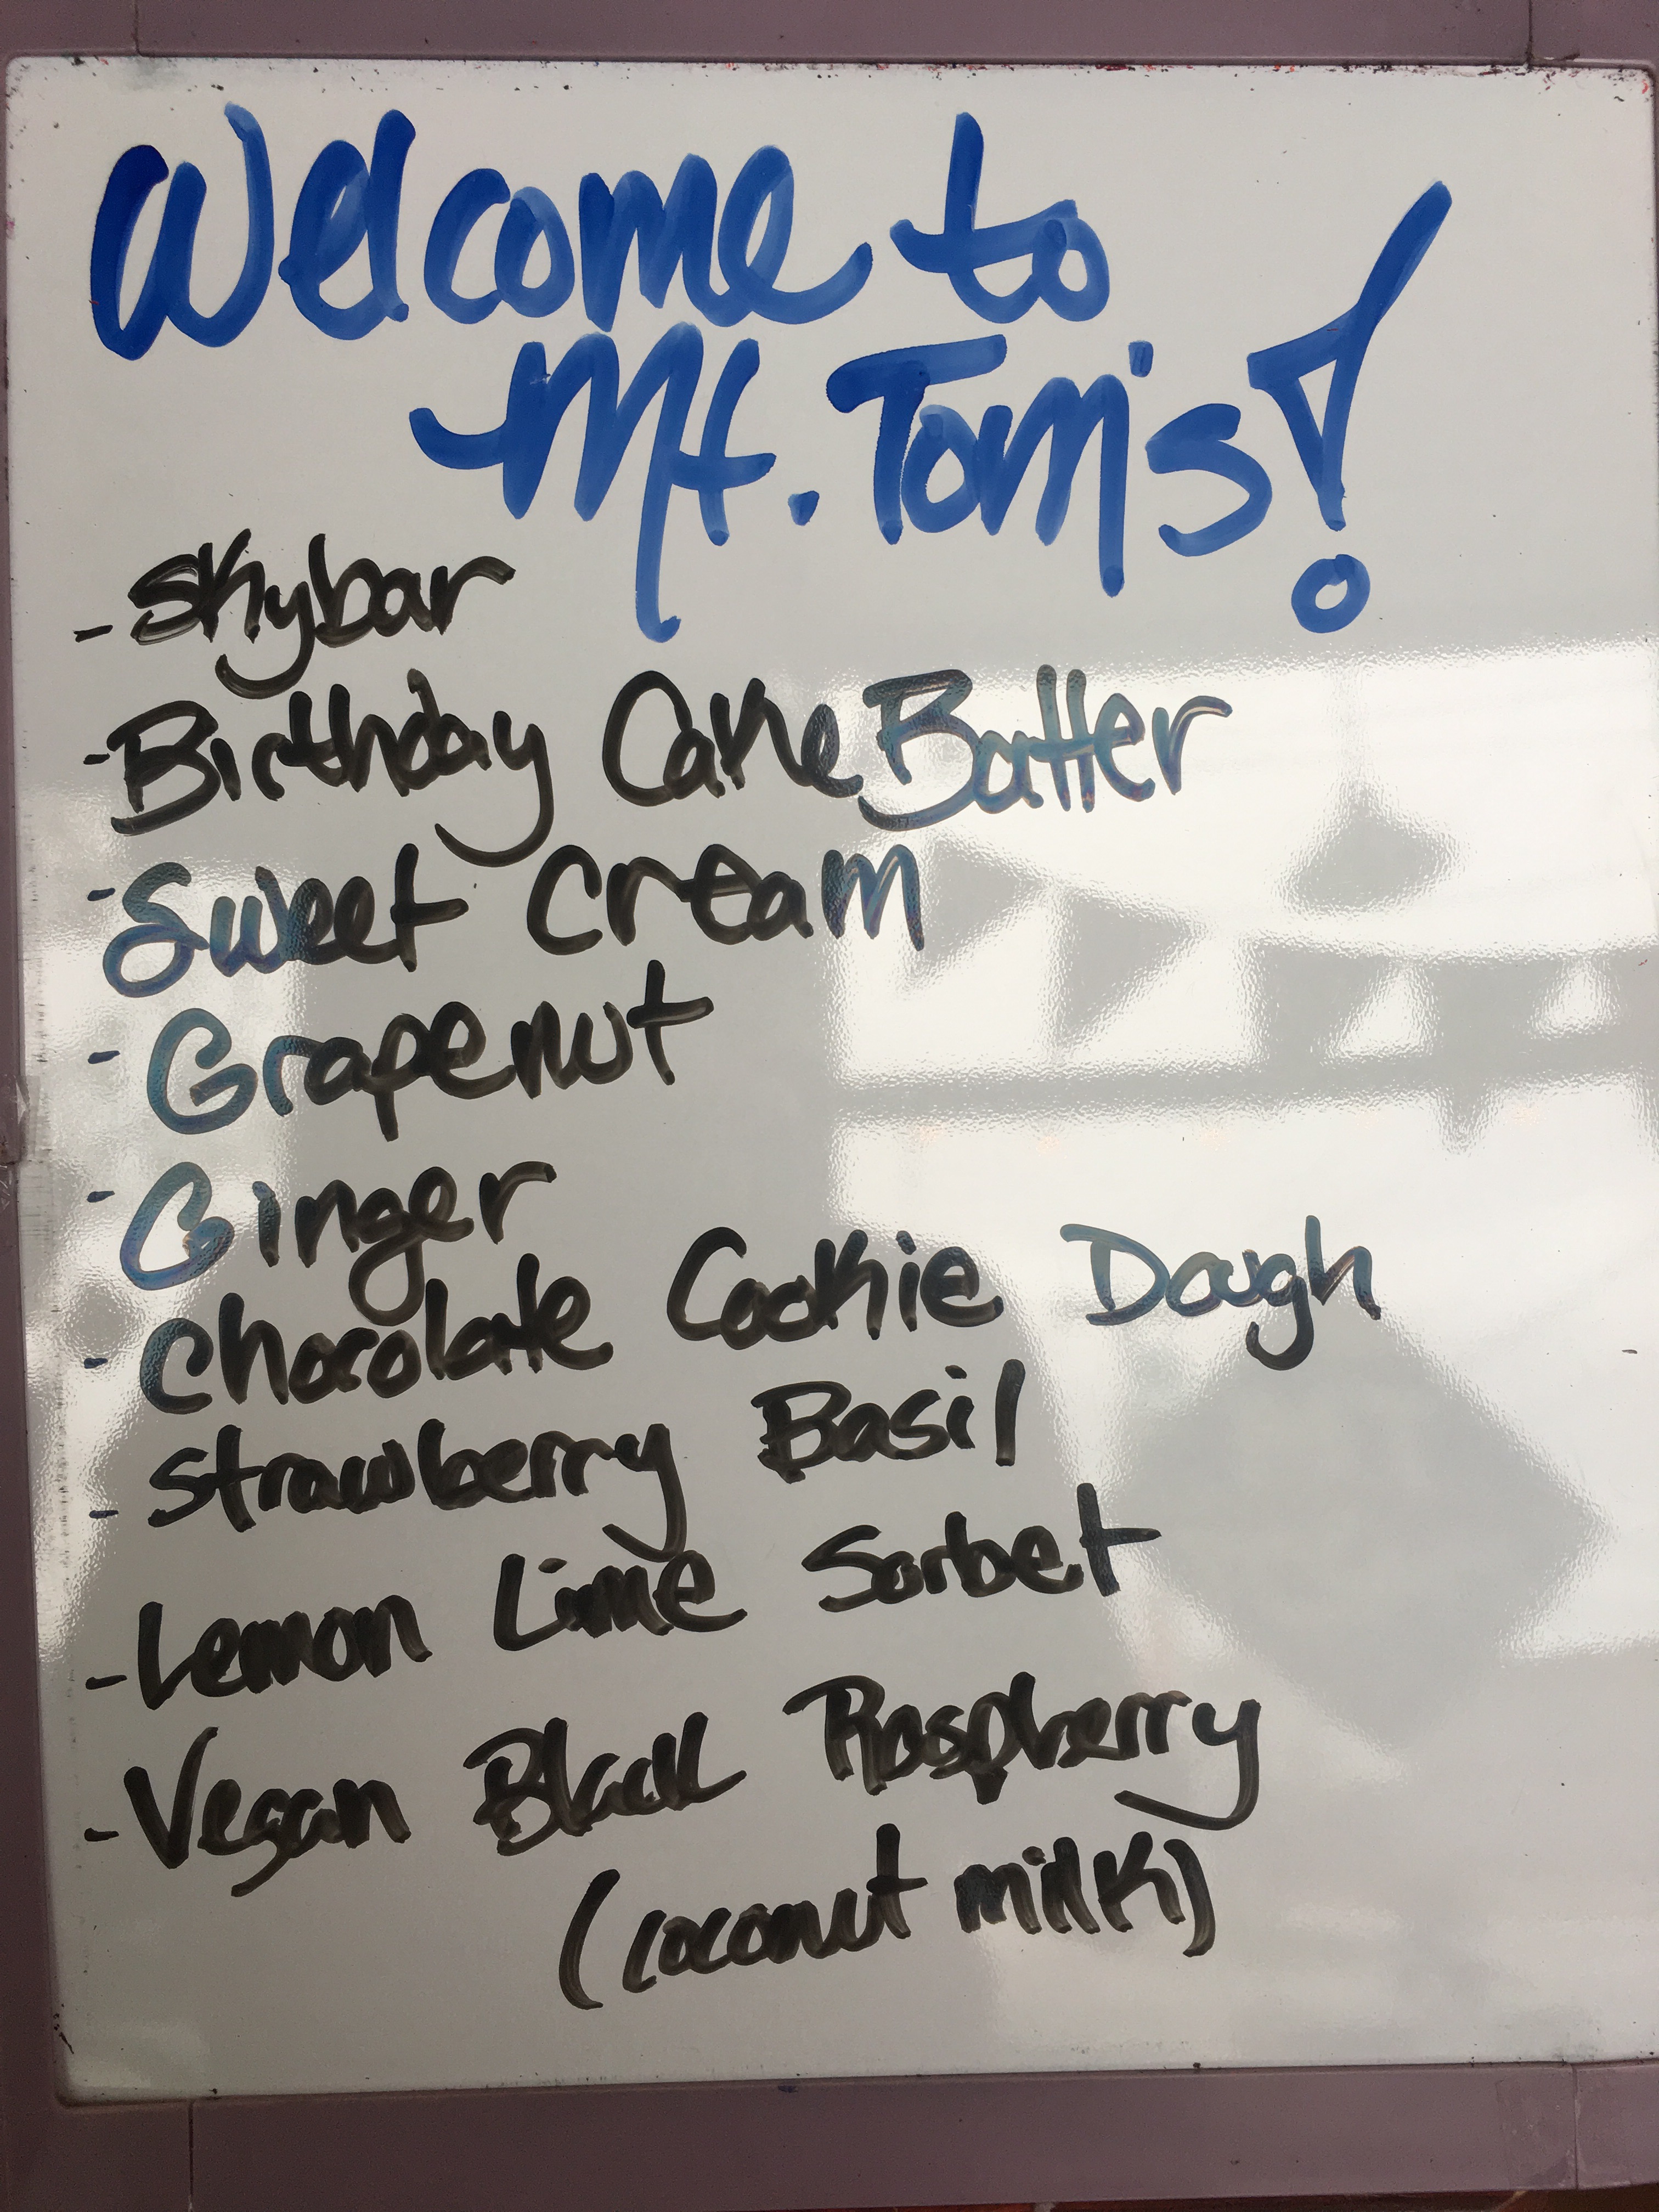 Welcome to
Mt. Tom's!
- Skybar
- Birthday Cake Batter
- Sweet Cream
- Grapenut
- Ginger
- Chocolate Cookie Dough
- Strawberry Basil
- Lemon Lime Sorbet
- Vegan Black Raspberry
(coconut milk)